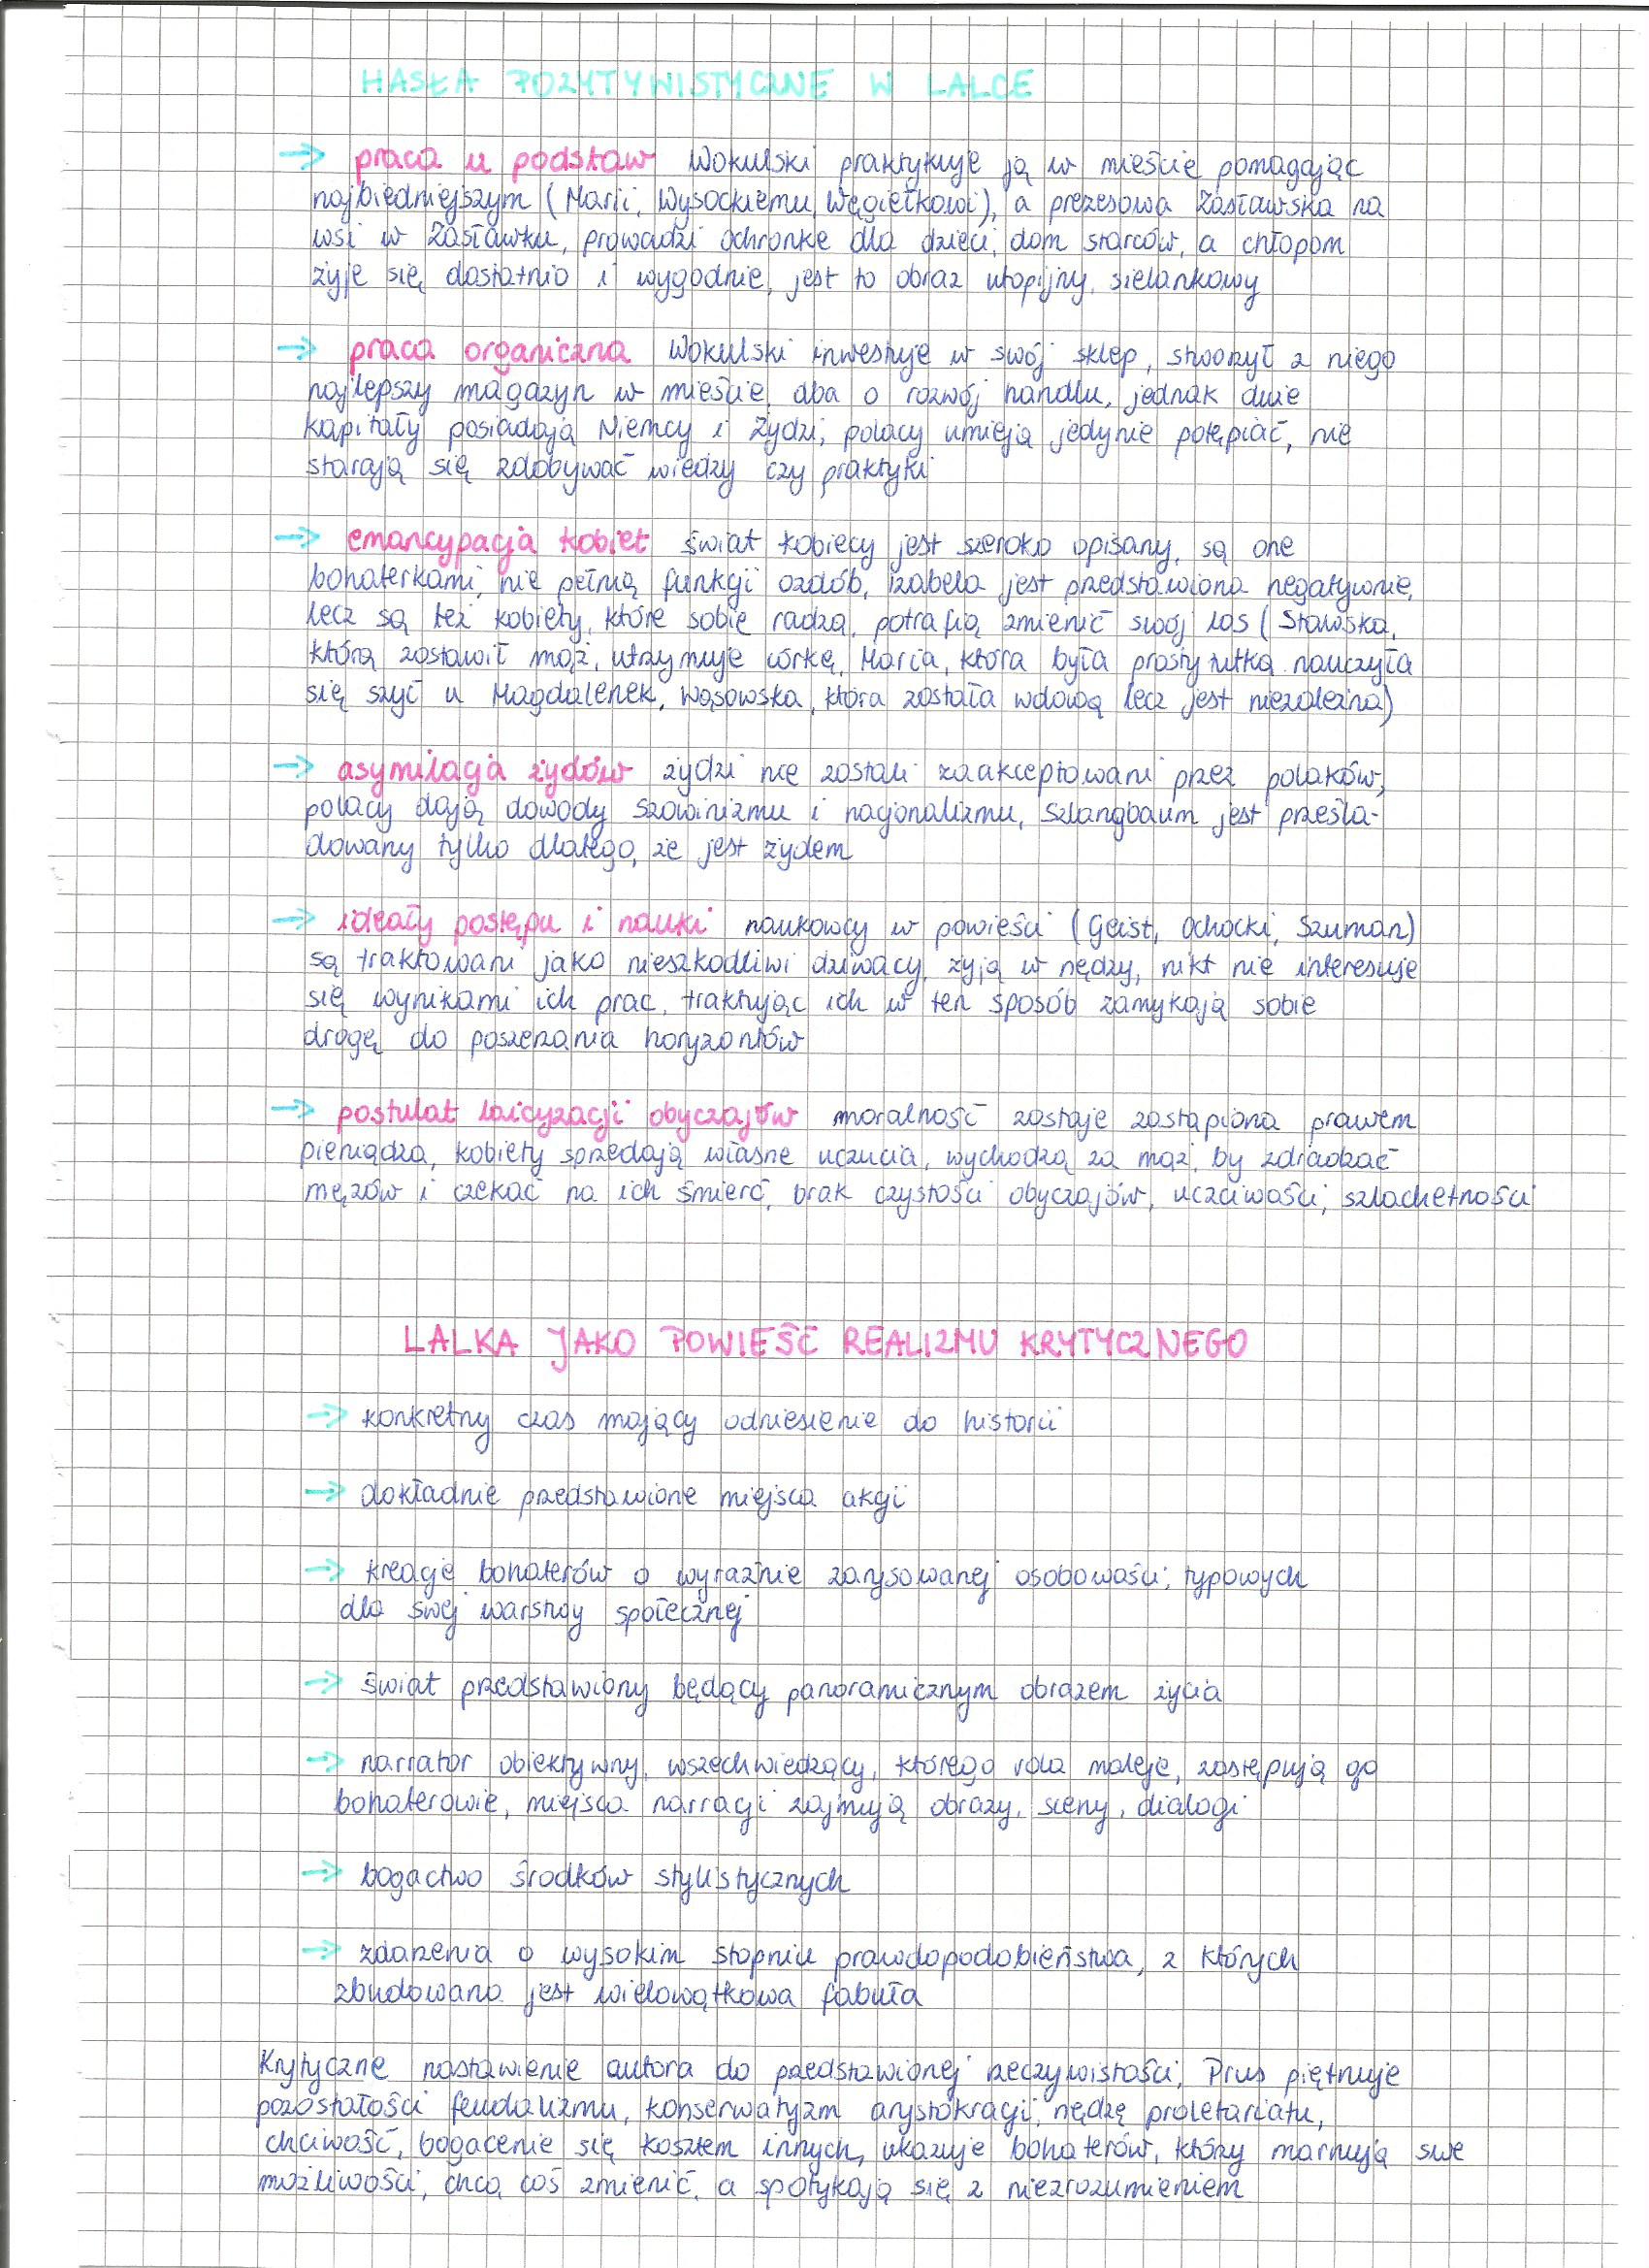 HASŁA POZYTYWISTYCZNE W LALCE
→ praca u podstaw Wokulski praktykuje ją w mieście pomagając
najbiedniejszym (Marii, Wysockiemu, Węgiełkowi), a prezesowa Zasławska na
wsi w Zasławku, prowadzi ochronkę dla dzieci, dom starców, a chłopom
żyje się dostatnio i wygodnie, jest to obraz utopijny, sielankowy
→ praca organiczna Wokulski inwestuje w swój sklep, stworzył z niego
najlepszy magazyn w mieście, dba o rozwój handlu, jednak duże
kapitały posiadają Niemcy i Żydzi, polacy umieją jedynie potępiać, nie
starają się zdobywać wiedzy czy praktyki
→ emancypacja kobiet świat kobiecy jest szeroko opisany, są one
bohaterkami, nie pełnią funkcji ozdób, Izabela jest przedstawiona negatywnie,
lecz są też kobiety, które sobie radzą, potrafią zmienić swój los (Stawska,
którą zostawił mąż, utrzymuje córkę, Maria, która była prostytutką nauczyła
się szyć u Magdalenek, Wąsowska, która została wdową lecz jest niezależna)
→ asymilacja żydów żydzi nie zostali zaakceptowani przez polaków,
polacy dają dowody szowinizmu i nacjonalizmu, Szlangbaum jest prześla-
dowany tylko dlatego, że jest żydem
→ ideały postępu i nauki naukowcy w powieści (Geist, Ochocki, Szuman)
są traktowani jako nieszkodliwi dziwacy, żyją w nędzy, nikt nie interesuje
się wynikami ich prac, traktując ich w ten sposób zamykają sobie
drogę do poszerzania horyzontów
→ postulat laicyzacji obyczajów moralność zostaje zastąpiona prawem
pieniądza, kobiety sprzedają własne uczucia, wychodzą za mąż, by zdradzać
mężów i czekać na ich śmierć, brak czystości obyczajów, uczciwości, szlachetności
LALKA JAKO POWIEŚĆ REALIZMU KRYTYCZNEGO
→ konkretny czas mający odniesienie do historii
→ dokładnie przedstawione miejsca akcji
→ kreacje bohaterów o wyraźnie zarysowanej osobowości, typowych
dla swej warstwy społecznej
→ świat przedstawiony będący panoramicznym obrazem życia
→ narrator obiektywny, wszechwiedzący, którego rola maleje, zastępują go
bohaterowie, miejsca narracji zajmują obrazy, sceny, dialogi
→ bogactwo środków stylistycznych
→ zdarzenia o wysokim stopniu prawdopodobieństwa, z których
zbudowana jest wielowątkowa fabuła
Krytyczne nastawienie autora do przedstawionej rzeczywistości, Prus piętnuje
pozostałości feudalizmu, konserwatyzm arystokracji, nędzę proletariatu,
chciwość, bogacenie się kosztem innych, ukazuje bohaterów, którzy marnują swe
możliwości, chcą coś zmienić, a spotykają się z niezrozumieniem